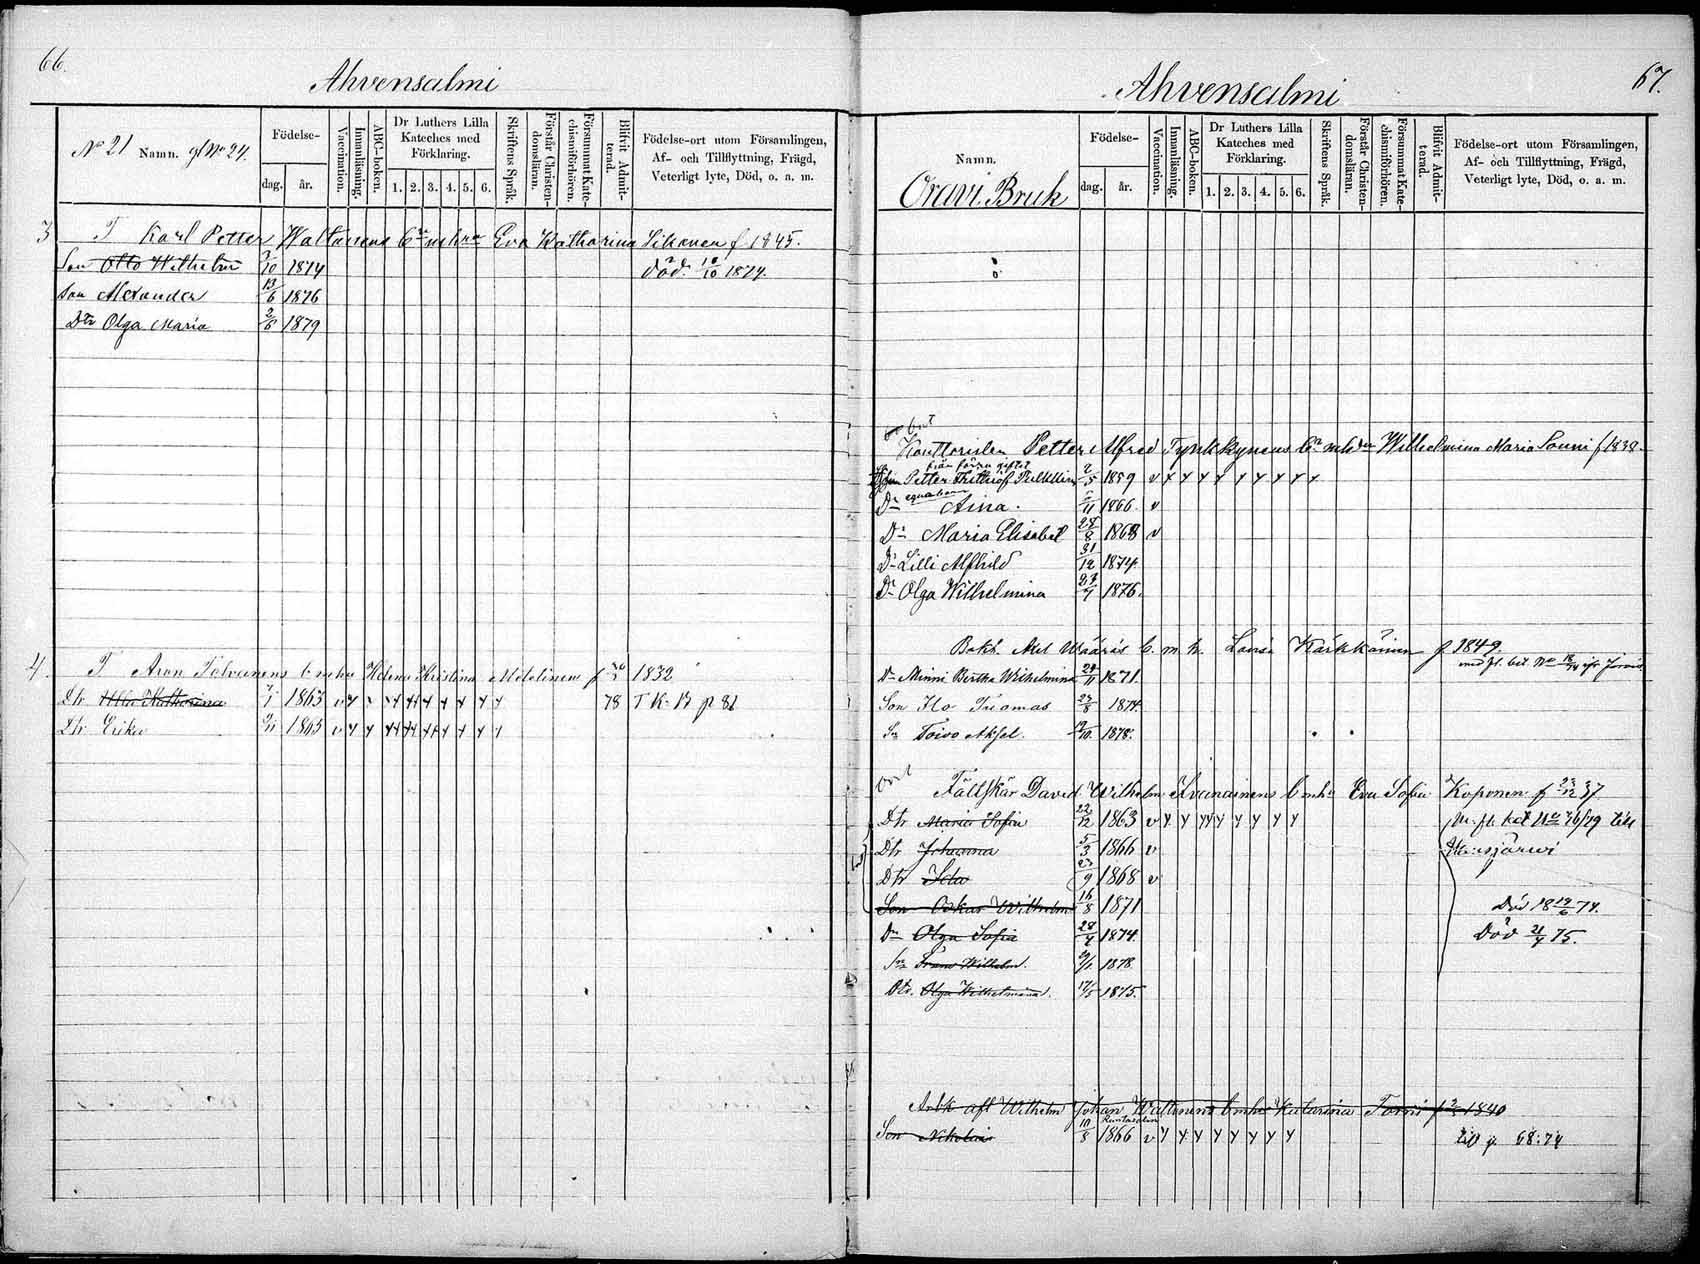 66.
Ahvensalmi
No 21 Namn. gl No 24.
Födelse-
dag. år.
Vaccination.
Innanläsning.
ABC-boken.
Dr Luthers Lilla Kateches med Förklaring.
1. 2. 3. 4. 5. 6.
Skriftens Språk.
Förstår Christendomsläran.
Försummat Katechismiförhören.
Blifvit Admitterad.
Födelse-ort utom Församlingen,
Af- och Tillflyttning, Frägd,
Veterligt lyte, Död, o. a. m.
3 T Karl Petter Waltonens Eva Katharina Silvanen f 1845.
Son Otto Wilhelm 7/10 1874 död 18/10 1874.
Son Alexander 13/6 1876
Dtr Olga Maria 2/6 1879
4. T Aron Tolvanens Helena Kristina f 1832
Dtr Ulla Katharina 7/1 1863 78 T K. B p 81
Dtr Erika 1865
67.
Ahvensalmi
Namn.
Oravi Bruk
Födelse-
dag. år.
Vaccination.
Innanläsning.
ABC-boken.
Dr Luthers Lilla Kateches med Förklaring.
1. 2. 3. 4. 5. 6.
Skriftens Språk.
Förstår Christendomsläran.
Försummat Katechismiförhören.
Blifvit Admitterad.
Födelse-ort utom Församlingen,
Af- och Tillflyttning, Frägd,
Veterligt lyte, Död, o. a. m.
Petter Alfred Tynkkynens Wilhelmina Maria Souni f 1838.
från förra giftet
Petter Frithiof Pulkkinen 2/5 1859 v
Dr Aina. 2/11 1866 v
Dr Maria Elisabet 28/8 1868 v
Dr Lilli Alfhild 31/12 1874.
Dr Olga Wilhelmina 1876.
Bokh. Axel Wääris E. m. h. Lovisa Kärkkäinen f 1849.
Dr Minni Bertha Wilhelmina 1871.
Son Ilo Tuomas 27/8 1874.
Sn Toivo Aksel. 19/10 1878.
Fältskär David Wilhelm Eva Sofia Koponen f 23/12 37
Dtr Maria Sofia 22/12 1863 v M. fl. bet No 26/79 till
Dtr Johanna 5/3 1866 v
Dtr Ida 1868 v
Son Oskar Wilhelm 16/8 1871 Död 18 19/6 74.
Dr Olga Sofia 28/4 1874. Död 21/4 75.
Sn Frans Wilhelm. 1878.
Dtr. Olga Wilhelmina. 17/5 1875.
Wilhelm Johan Waltonens Katarina Torni 1840
Rantasalmi
Son Nikolai 10/8 1866 v till p. 68. 74